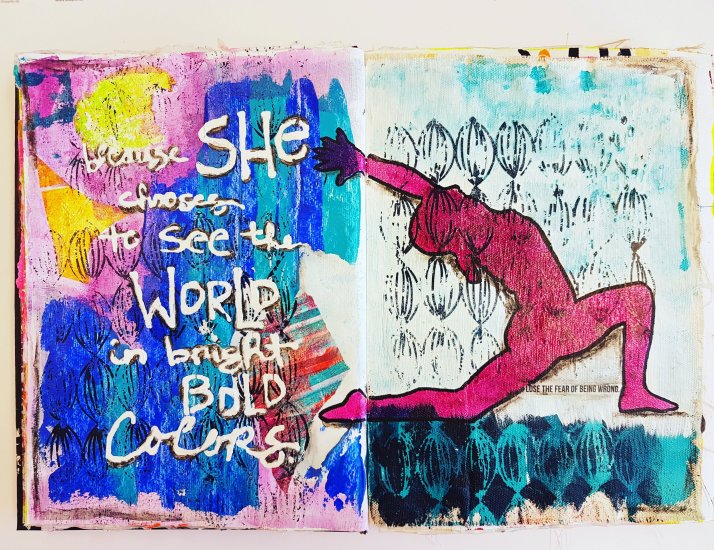 because SHe
chooses
to see the
WORLD
in bright
BOLD
COLORS.
LOSE THE FEAR OF BEING WRONG.